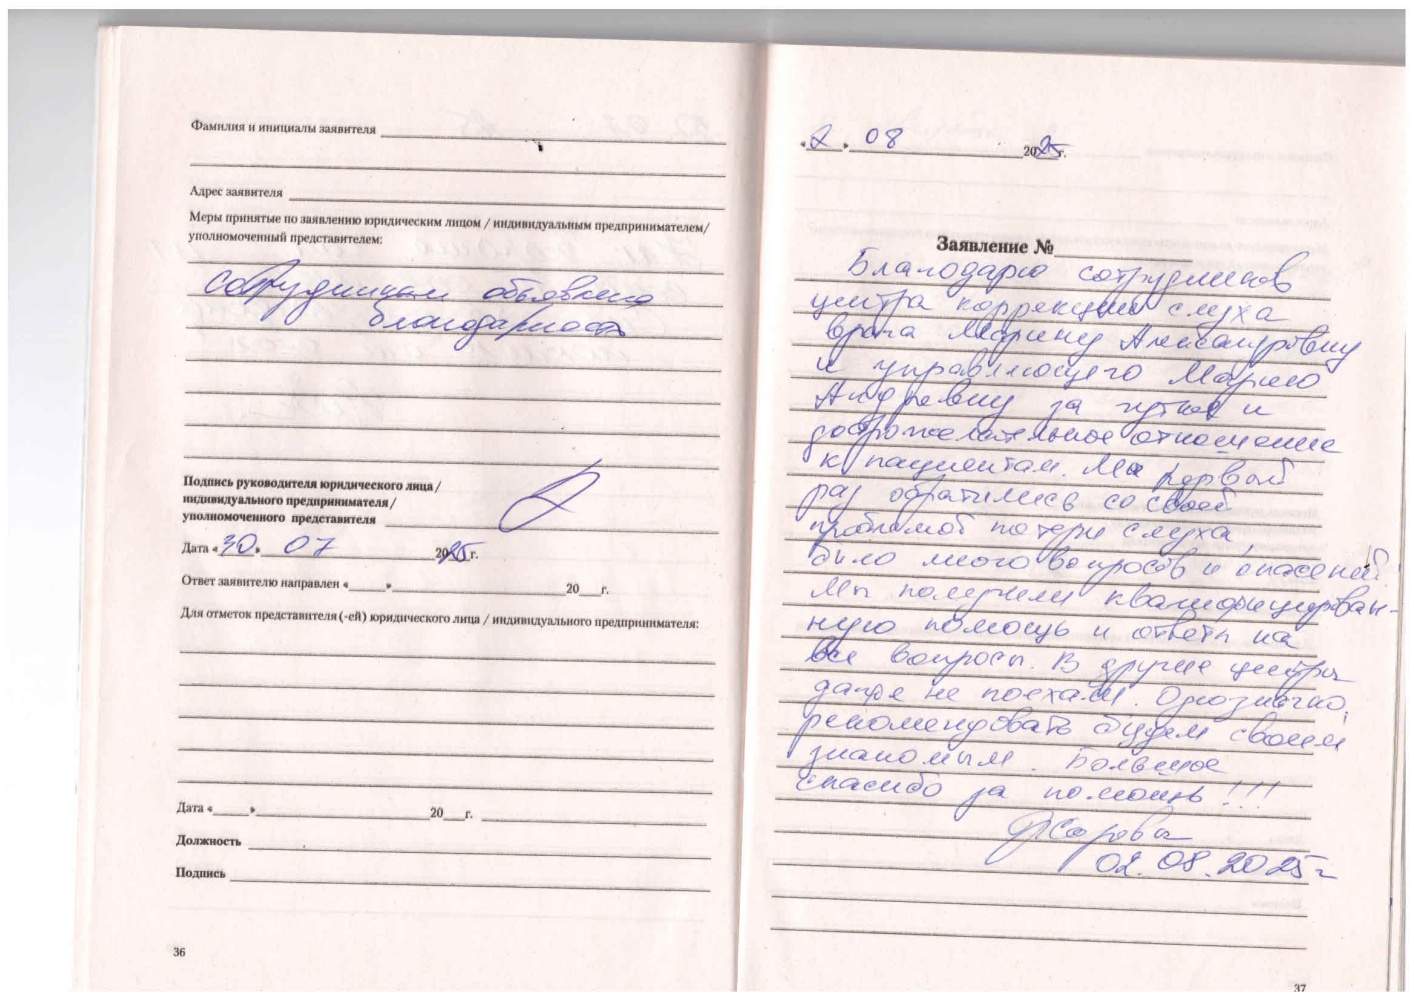 Фамилия и инициалы заявителя
Адрес заявителя
Меры принятые по заявлению юридическим лицом / индивидуальным предпринимателем/
уполномоченный представителем:
сотрудницам объявлена
благодарность
Подпись руководителя юридического лица /
индивидуального предпринимателя /
уполномоченного представителя
Дата «30» 07 2025 г.
Ответ заявителю направлен «____» 20___г.
Для отметок представителя (-ей) юридического лица / индивидуального предпринимателя:
Дата «____» 20___г.
Должность
Подпись
36
«2» 08 2025г.
Заявление №
Благодарю сотрудников
центра коррекции слуха
врача Марину Александровну
и управляющего Марию
Андревну за чуткое и
доброжелательное отношение
к пациентам. Мы первый
раз обратились со своей
проблемой потери слуха,
было много вопросов и опасений.
Мы получили квалифицирован-
ную помощь и ответы на
все вопросы. В другие центры
даже не поехали. Однозначно,
рекомендовать будем своим
знакомым. Большое
спасибо за помощь!!!
02.08.2025г
37